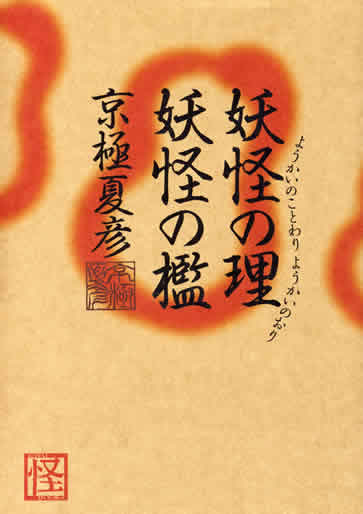 ようかいのことわり ようかいのおり
妖怪の理
妖怪の檻
京極夏彦
怪